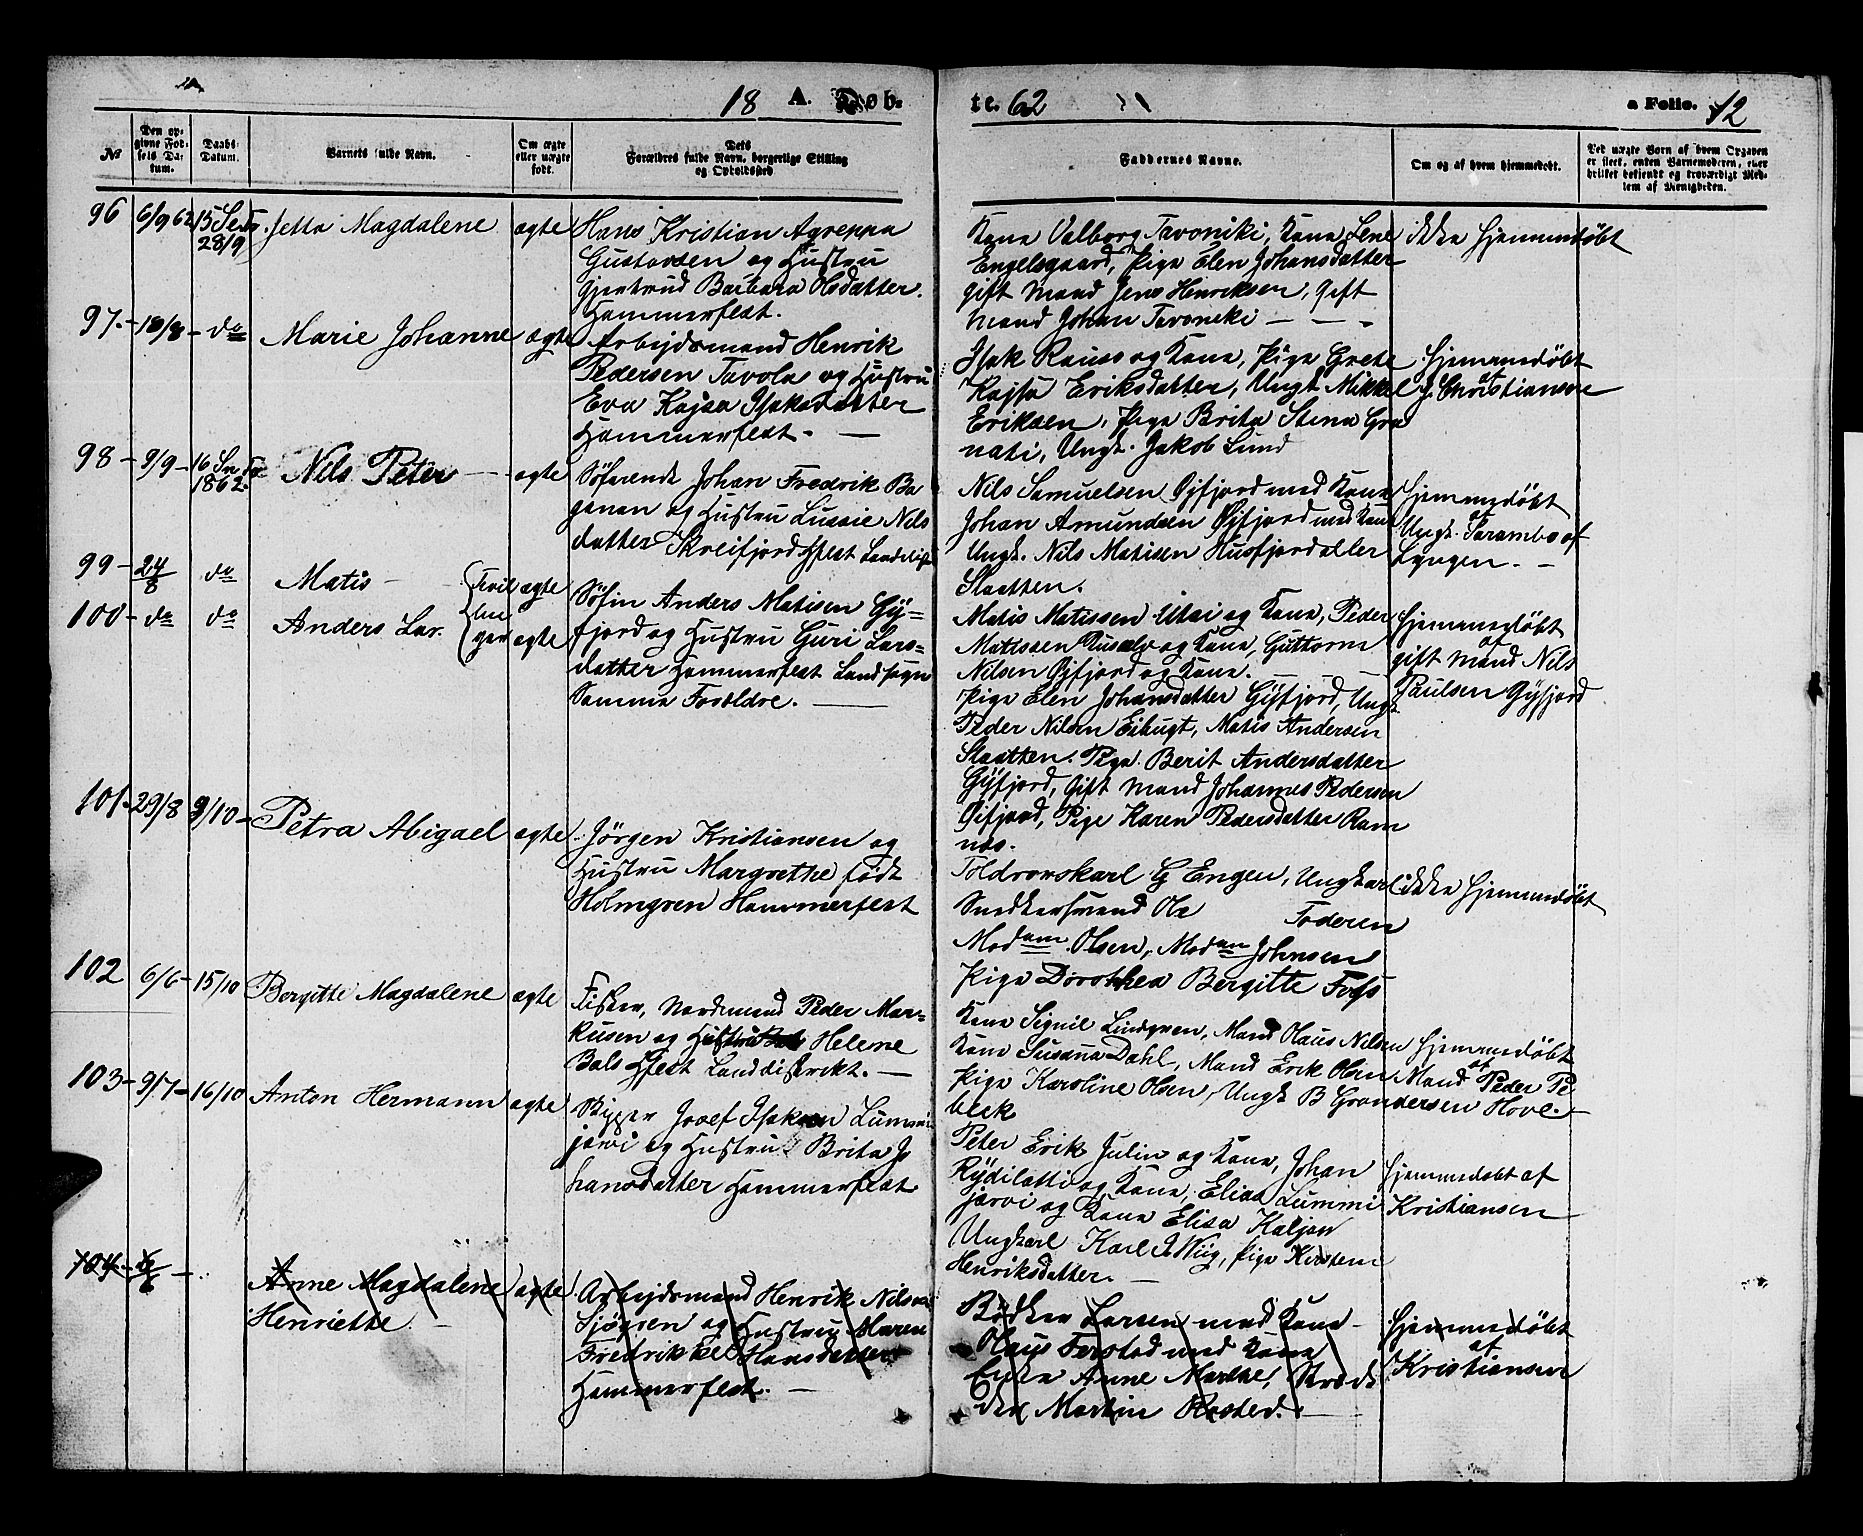 18 A. Døb-
te. 62
a Folio. 12
№
Den op-
givne Fød-
sels Da-
tum.
Daabs-
Datum.
Barnets fulde Navn.
Om ægte
eller uægte
født.
Dets
Forældres fulde Navn, borgerlige Stilling
og Opholdssted
Faddernes Navne.
Om og af hvem hjemmedøbt.
Ved uægte Børn af hvem Opgaven
er skeet, enten Barnemoderen, eller
hvilket bekjendt og troværdigt Med-
lem af Menigheden.
96 6/9 62 15 Se
28/9 Jetta Magdalene ægte
Hans Kristian Agreppa
Gustavsen og Hustru
Gjertrud Barbara Olsdatter.
Hammerfest.
Kone Valborg Tavoniki, Kone Lene
Engelsgaard, Pige Elen Johansdatter
gift Mand Jens Henriksen, gift
Mand Johan Tavoniki
ikke hjemmedøbt
97 18/8 do Marie Johanne ægte
Arbejdsmand Henrik
Pedersen Tavola og Hustru
Eva Kajsa Isaksdatter
Hammerfest.
Isak Rauso og Kone, Pige Grete
Kajsa Eriksdatter, Ungk. Mikkel
Eriksen, Pige Brita Stina Gra
nati, Ungk. Jakob Lund
Hjemmedøbt
af
J. Christiansen
98 9/9 16 Sn
1862 Nils Peter ægte
Søfarende Johan Fredrik
og Hustru Lussie Nils
datter Skreifjord Hfest
Nils Samuelsen Øjfjord med Kone
Johan Amundsen Øjfjord med Kone
Ungk. Nils Matisen Husfjord aller
Slaatten.
Hjemmedøbt
Ungk. Sarambo af
Lyngen.
99 24/8 do Matis Tvil ægte
100 do do Anders Lar. lin
ger ægte
Søfin Anders Matisen Gÿ-
fjord og Hustru Guri Lars-
datter Hammerfest Landsogn
Samme Foreldre.
Matis Matissen Utai og Kone, Peder
Matissen og Kone, Guttorm
Nilsen Øjfjord og Kone.
Pige Elen Johansdatter Gÿfjord, Ungk.
Peder Nilsen Eibugt, Matis Andersen
Slaatten. Pige Berit Andersdatter
Gÿfjord, gift Mand Johannes Pedersen
Øifjord, Pige Karen Pedersdatter Ram
nes.
Hjemmedøbt
af
gift Mand Nils
Paulsen Gÿfjord
101 29/8 9/10 Petra Abigael ægte
Jörgen Kristiansen og
Hustru Margrethe født
Holmgren Hammerfest
Toldrorskarl G Engen, Ungkarl
Snedkersvend Ole Foderen
Modam Olsen, Modam Johnsen
Pige Dorothea Bergitte Foss
ikke hjemmedøbt
102 6/6 15/10 Bergitte Magdalene ægte
Fisker, Nordmand Peder Mar-
kusen og Hustru Helene
Bals Hfest Landdistrikt.
Kone Signil Lindgren, Mand Olaus Nilsen
Kone Susanna Dahl, Mand Erik Olsen
Pige Karoline Olsen, Ungk B Gron
beck
Hjemmedøbt
af
Mand Peder Pe
dersen Hove.
103 9/7 16/10 Anton Hermann ægte
Bygger Josef Isaksen Lummi
jarvi og Hustru Brita Jo
hansdatter Hammerfest
Peter Erik Julin og Kone, Johan
Rÿdilatti og Kone, Elias Lummi
jarvi og Kone Elisa Kaljon
Ungkarl Karl J. Wiig, Pige Kirsten
Henriksdatter.
Hjemmedøbt af
Kristiansen
104 Anne Magdalene ægte
Henriette
Arbejdsmand Henrik Nilsen
Sjögren og Hustru Maren
Fredrikke Hansdatter
Hammerfest.
Bødker Larsen med Kone
Olaus Ferstad med Kone
Enke Anne Marthe,
Martin Rosted.
Hjemmedøbt
af
Kristiansen